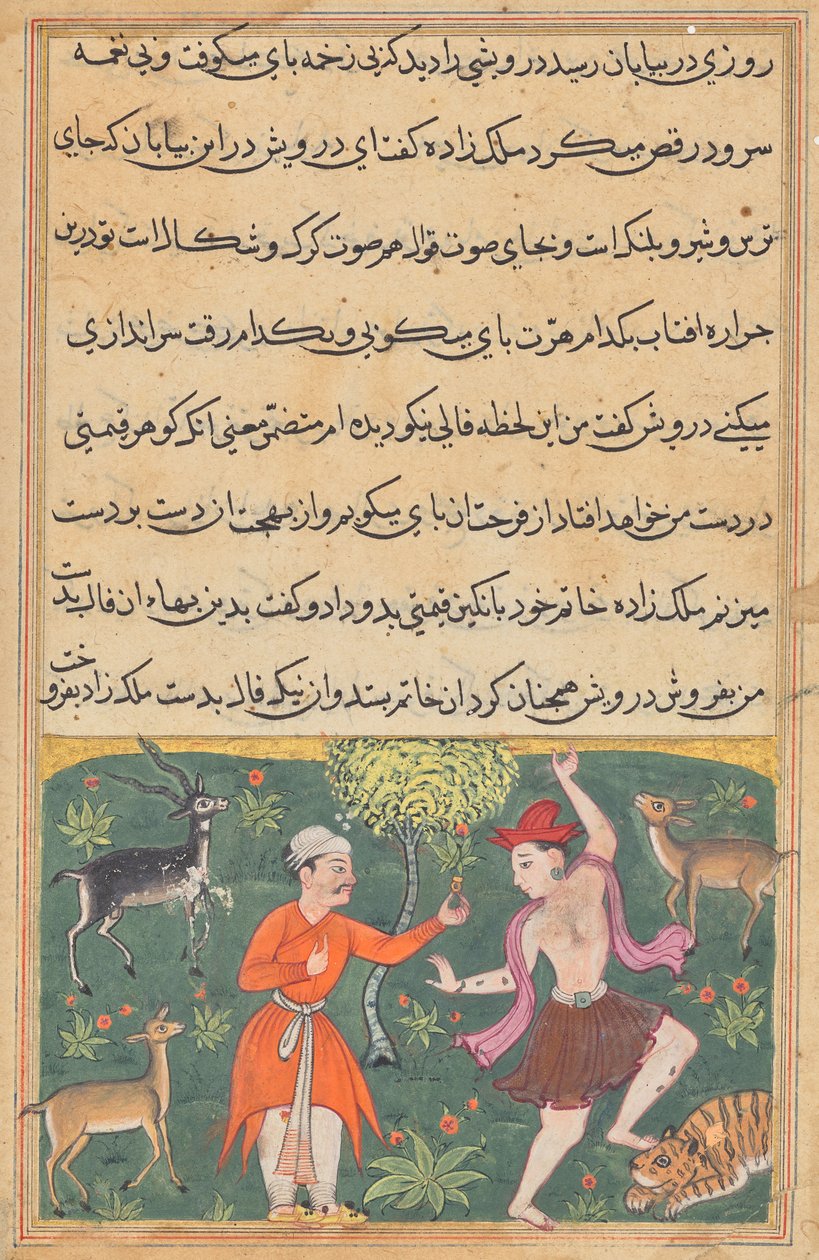 روزي در بيابان رسيد درويشي را ديد كه بي زخمه باي ميكوفت و بي نغمه
سرود رقص ميكرد ملك زاده كفت اي درويش در اين بيابان كه جاي
ترس و شير و بلنك است و بجاي صوت قوال هم صوت كرك و شكال است تو درين
حراره افتاب بكدام هزّت باي ميكوبي و بكدام رقت سراندازي
ميكني درويش كفت من اين لحظه فالي نيكو ديده ام متضمّن معني انك كوهر قيمتي
در دست من خواهد افتاد از فرحت ان باي ميكوبم و از بهجت ان دست بر دست
ميزنم ملك زاده خاتم خود با نكين قيمتي بدو داد و كفت بدين بهاء ان فال بدست
من بفروش درويش همچنان كرد ان خاتم بستد و ان نيك فال بدست ملك زاد بفروخت